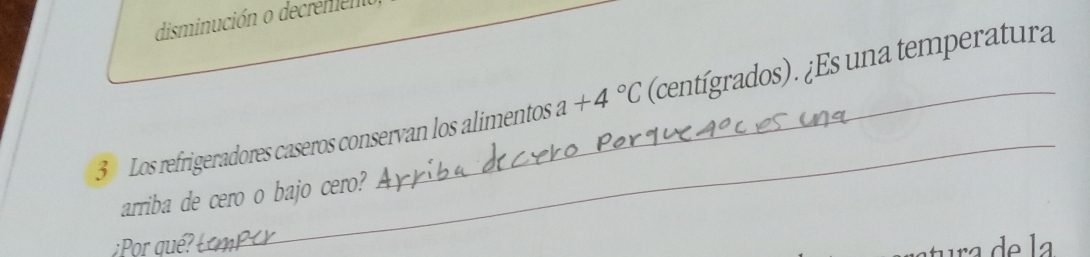 disminución o decremento,
3 Los refrigeradores caseros conservan los alimentos a +4 °C (centígrados). ¿Es una temperatura
arriba de cero o bajo cero? Arriba de cero porque 4°C es una
¿Por qué? temper
de la